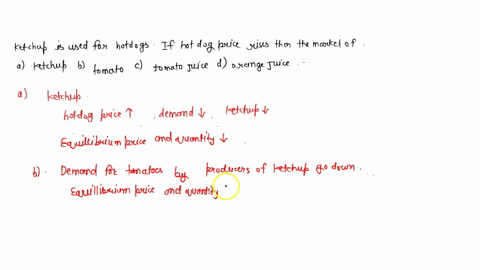 ketchup is used for hotdogs. If hot dog price rises then the market of.
a) ketchup b) tomato c) tomato juice d) orange juice.
a) ketchup.
hotdog price ↑ , demand ↓ , ketchup ↓
Equilibrium price and quantity ↓
b). Demand for tomatoes by producers of ketchup go down.
Equilibrium price and quantity